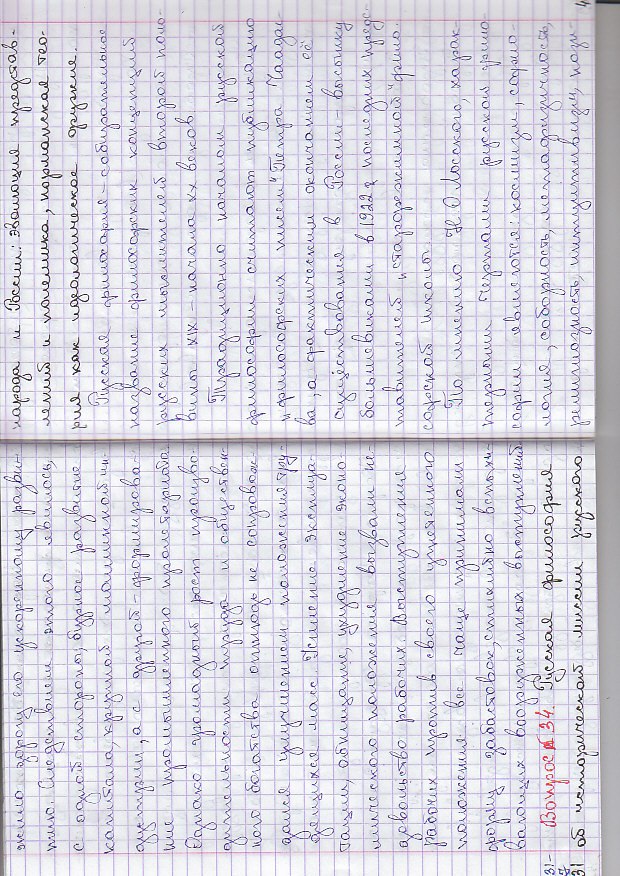 жило дорогу его ускоренному разви-
тию. Следствием этого явилось,
с одной стороны, бурное развитие
капитала, крупной машинной ин-
дустрии, а с другой - формирова-
ние промышленного пролетариата.
Однако громадный рост произво-
дительности труда и обществен-
ного богатства отнюдь не сопровож-
дался улучшением положения тру-
дящихся масс. Усиление эксплуа-
тации, обнищание, ухудшение эконо-
мического положения вызвали не-
довольство рабочих. Выступления
рабочих против своего угнетенного
положения все чаще принимали
форму забастовок, стихийно вспыхи-
вающих вооруженных выступлений.
31- Вопрос 34. Русская философия
31 об исторической миссии русского
народа и России: Эволюция представ-
лений и полемика, норманская тео-
рия как идеологическое оружие.
Русская философия - собирательное
название философских концепций
русских мыслителей второй поло-
вины XIX - начала XX веков.
Традиционно началом русской
философии считают публикацию
"философских писем" Петра Чаадае-
ва, а фактическим окончанием её
существования в России - высылку
большевиками в 1922 г последних предс-
тавителей "старорежимной" фило-
софской школы.
По мнению Н.О.Лосского, харак-
терными чертами русской фило-
софии являются: космизм, софио-
логия, соборность, метафизичность,
религиозность, интуитивизм, пози-
4